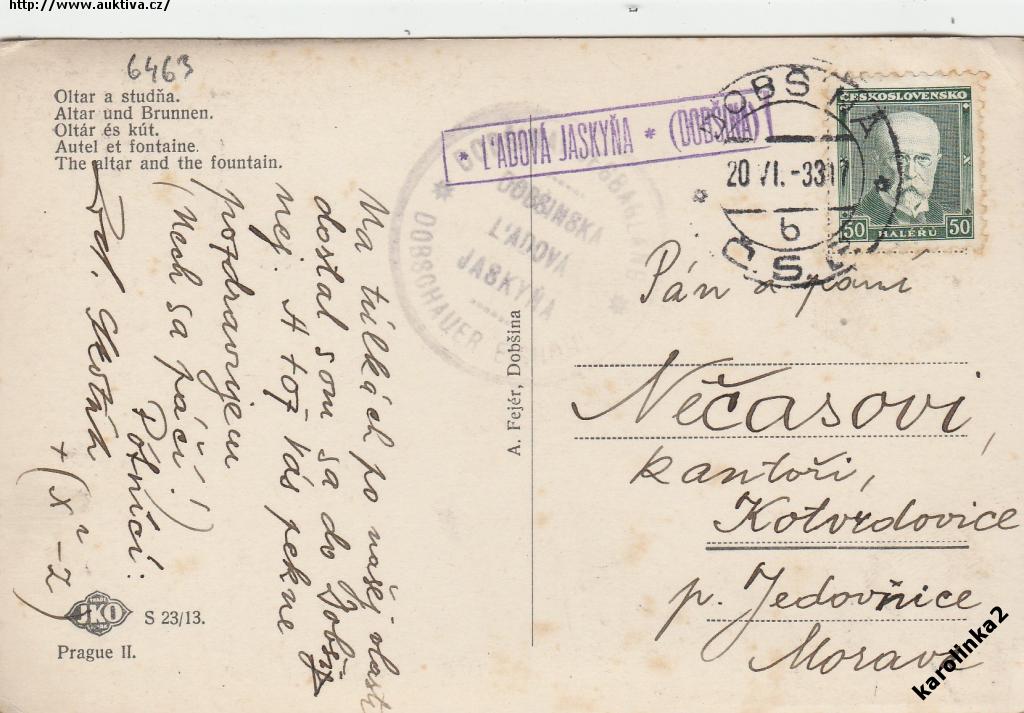 http://www.auktiva.cz/
6463
Oltar a studňa.
Altar und Brunnen.
Oltár és kút.
Autel et fontaine.
The altar and the fountain.
* L'ADOVÁ JASKYŇA * (DOBŠINÁ)
DOBŠINSKA
L'ADOVÁ
JASKYŇA
DOBSCHAUER
DOBŠINÁ
20 VI.-33 17
b
ČSR
ČESKOSLOVENSKO
50 HALÉŘŮ 50
Na túlkách po našej vlasti
dostal som sa do Dobši-
nej. A tož Vás pekne
pozdravujem
(Nech sa páči!)
Pötníci:
+ (x² - z)
A. Fejér, Dobšina
Pán a paní
Nečasovi,
kantoři,
Kotvrdovice
p. Jedovnice
Morava
TRADE
JKO
MARK
S 23/13.
Prague II.
karolinka2